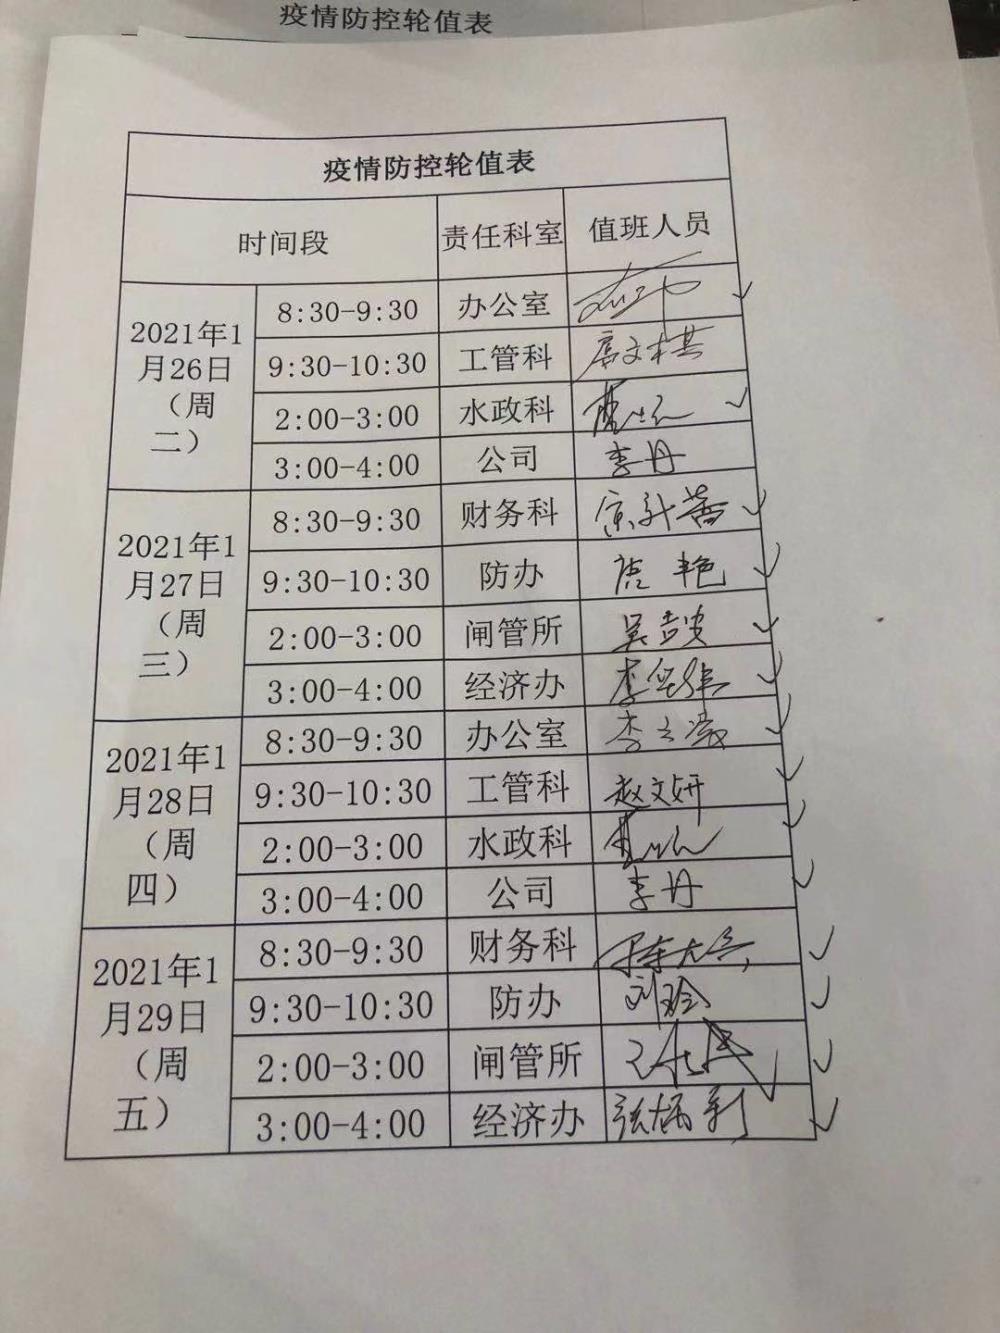 疫情防控轮值表
疫情防控轮值表
时间段 责任科室 值班人员
2021年1月26日（周二）
8:30-9:30 办公室
9:30-10:30 工管科
2:00-3:00 水政科
3:00-4:00 公司 李丹
2021年1月27日（周三）
8:30-9:30 财务科
9:30-10:30 防办 虎艳
2:00-3:00 闸管所
3:00-4:00 经济办
2021年1月28日（周四）
8:30-9:30 办公室
9:30-10:30 工管科 赵文妍
2:00-3:00 水政科
3:00-4:00 公司 李丹
2021年1月29日（周五）
8:30-9:30 财务科
9:30-10:30 防办 刘玲
2:00-3:00 闸管所
3:00-4:00 经济办